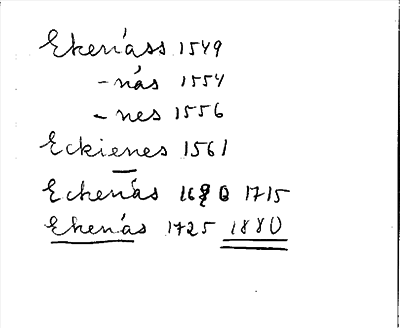 Ekenáss 1549
-nás 1554
-nes 1556
Eckienes 1561
Echenás 1715
Ekenás 1725 1880